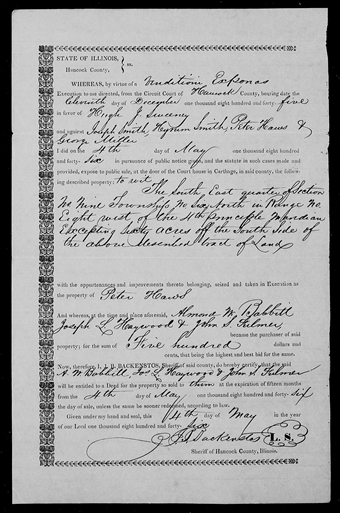 STATE OF ILLINOIS, } ss.
Hancock County,
WHEREAS, by virtue of a Venditioni Exponas
Execution to me directed, from the Circuit Court of Hancock County, bearing date the
Eleventh day of December one thousand eight hundred and forty-five
in favor of Hugh J Sweney
and against Joseph Smith, Hyrum Smith, Peter Haws &
George Miller
I did on the 4th day of May one thousand eight hundred
and forty-six in pursuance of public notice given, and the statute in such cases made and
provided, expose to public sale, at the door of the Court house in Carthage, in said county, the follow-
ing described property; to wit
The South East quarter of Section
No Nine Township No Six North in Range No.
Eight west of the 4th Principle
Excepting Sixty acres off the South Side of
the above described tract of Land
with the appurtenances and improvements thereto belonging, seized and taken in Execution as
the property of Peter Haws
And whereas, at the time and place aforesaid, Almond W. Babbitt
Joseph L Heywood & John S. Fulmer
became the purchaser of said
property; for the sum of Five hundred dollars and
cents, that being the highest and best bid for the same.
Now, therefore, I, J. B. BACKENSTOS, Sheriff of said county, do hereby certify, that the said
A. W. Babbitt, Jos L. Heywood & John S. Fulmer
will be entitled to a Deed for the property so sold to them at the expiration of fifteen months
from the 4th day of May one thousand eight hundred and forty-six
the day of sale, unless the same be sooner redeemed, according to law.
Given under my hand and seal, this 4th day of May in the year
of our Lord one thousand eight hundred and forty-six
J B Backenstos L. S.
Sheriff of Hancock County, Illinois.